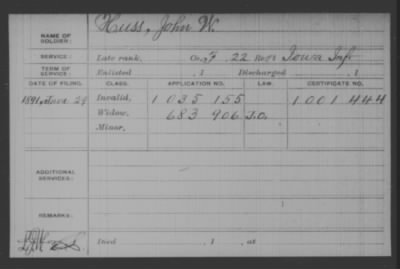 NAME OF SOLDIER: Huss, John W.
SERVICE: Late rank, Co. F, 22 Reg't Iowa Inf
TERM OF SERVICE: Enlisted , 1 Discharged , 1
DATE OF FILING. CLASS. APPLICATION NO. LAW. CERTIFICATE NO.
1891, June 29 Invalid, 1 035 155 1 001 444
Widow, 683 906 J.O.
Minor,
ADDITIONAL SERVICES:
REMARKS:
Died , 1 , at